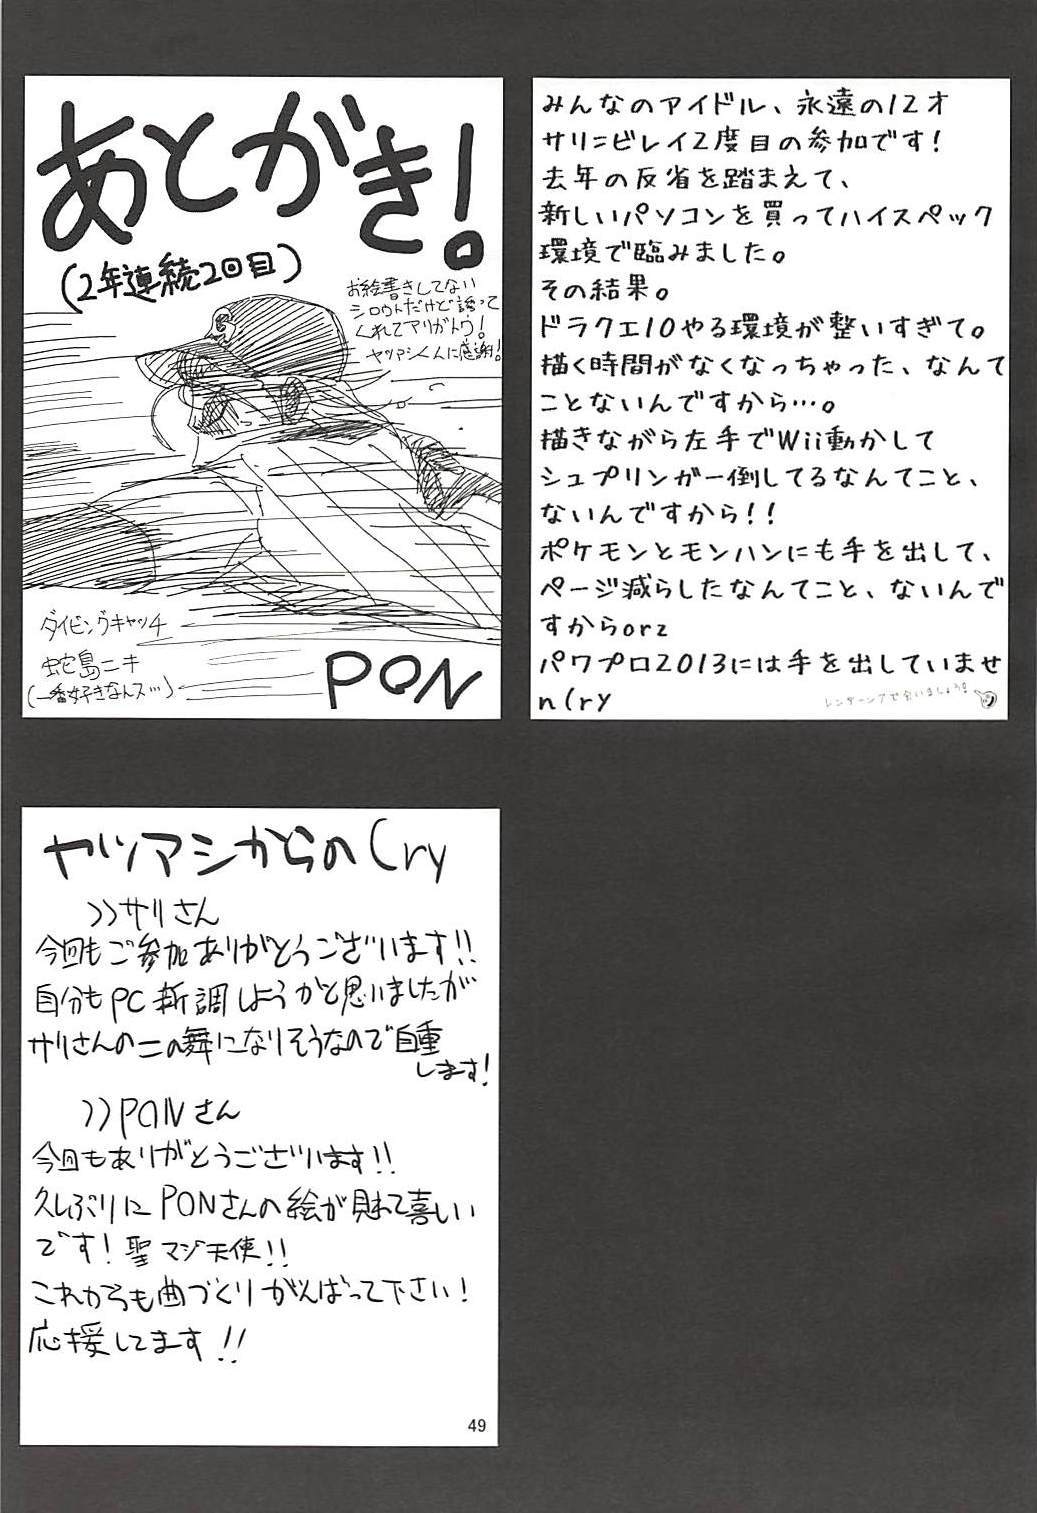 みんなのアイドル、永遠の12才
サリ=ビレイ2度目の参加です!
去年の反省を踏まえて、
新しいパソコンを買ってハイスペック
環境で臨みました。
その結果。
ドラクエ10やる環境が整いすぎて。
描く時間がなくなっちゃった、なんて
ことないんですから…。
描きながら左手でWii動かして
シュプリンガー倒してるなんてこと、
ないんですから!!
ポケモンとモンハンにも手を出して、
ページ減らしたなんてこと、ないんで
すからorz
パワプロ2013には手を出していませ
n(ry
レンダーシアで会いましょうよ
あとがき!
(2年連続2回目)
お絵書きしてない
シロウトだけど誘って
くれてアリガトウ!
ヤツアシくんに感謝!
ダイビングキャッチ
蛇島ニキ
(一番好きなんス…)
PON
ヤツアシからの(ry
>>サリさん
今回もご参加ありがとうございます!!
自分もPC新調しようかと思いましたが
サリさんの二の舞になりそうなので自重
します!
>>PONさん
今回もありがとうございます!!
久しぶりにPONさんの絵が見れて喜しい
です!聖マジ天使!!
これからも曲づくりがんばって下さい!
応援してます!!
49